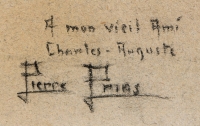 A mon vieil Ami
Charles-Auguste
Pierre Prins